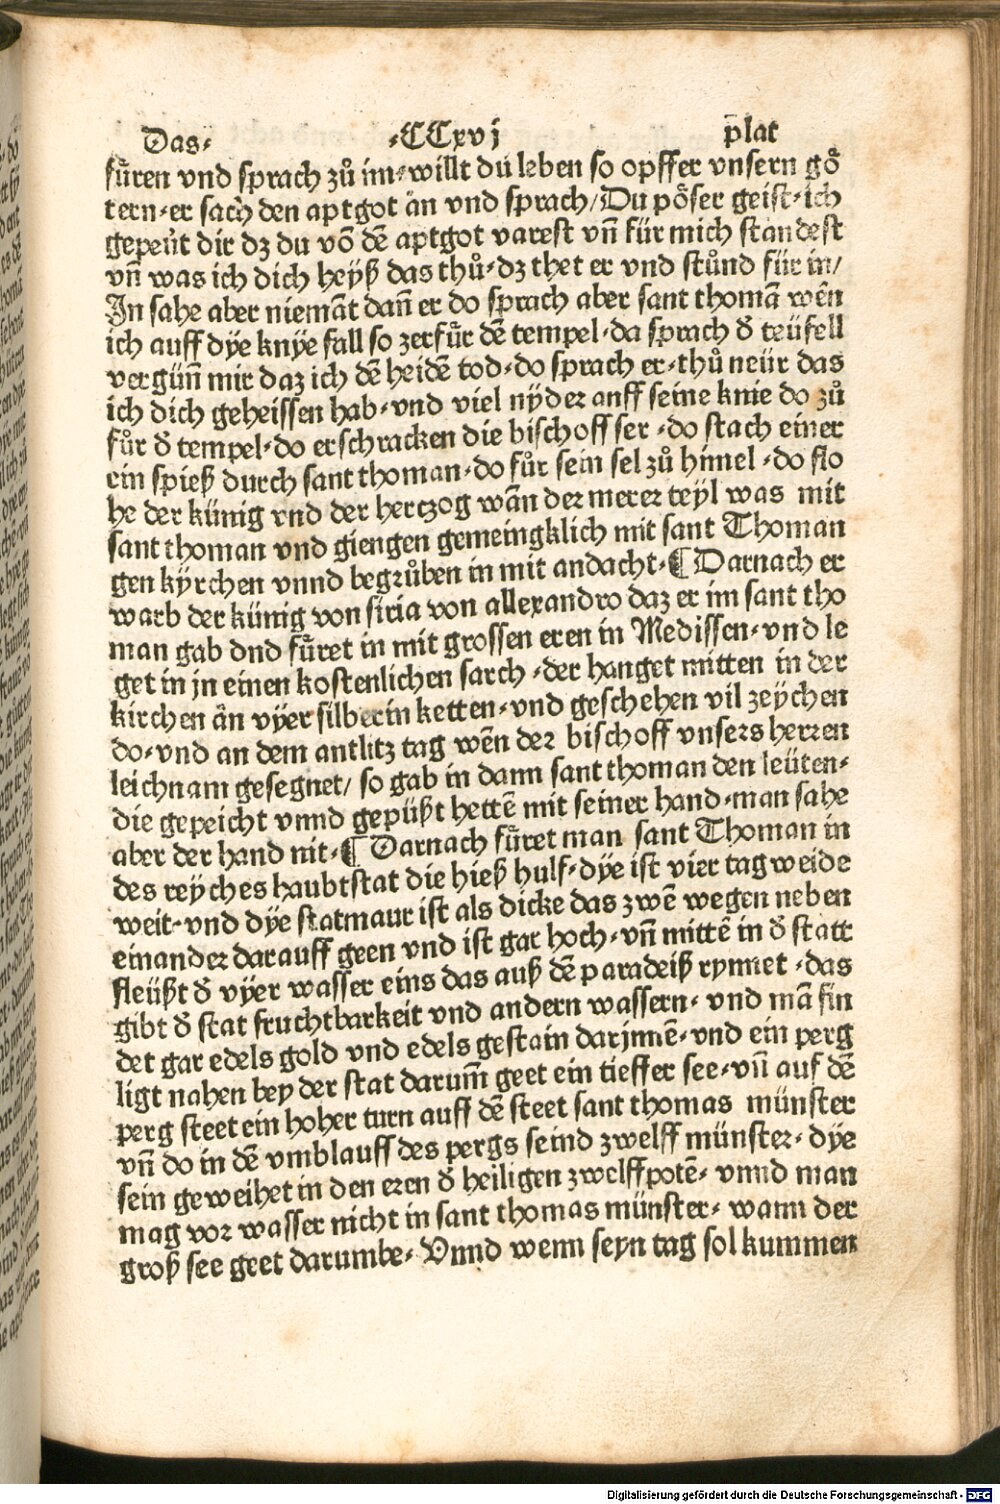 Das⸗ ⸗CCxvj plat
fůren vnd sprach zů im⸗willt du leben so opffer vnsern gö
tern⸗er sach den aptgot an vnd sprach/Du pöser geist⸗ich
gepeüt dir dz du vō dē aptgot varest vn̄ für mich standest
vn̄ was ich dich heyß das thů⸗dz thet er vnd stůnd für in/
In sahe aber niemāt dan̄ er do sprach aber sant thomā wēn
ich auff dÿe knÿe fall so zerfůr dē tempel⸗da sprach d̄ teüfell
vergün̄ mir daz ich dē heidē tod⸗do sprach er⸗thů neür das
ich dich geheissen hab⸗vnd viel nÿder anff seine knie do zů
fůr d̄ tempel⸗do erschracken die bischoff ser ⸗do stach einer
ein spieß durch sant thoman⸗do fůr sein sel zů himel ⸗do flo
he der künig vnd der hertzog wān der merer teÿl was mit
sant thoman vnd giengen gemeingklich mit sant Thoman
gen kÿrchen vnnd begrůben in mit andacht⸗¶ Darnach er
warb der künig von siria von allexandro daz er im sant tho
man gab dnd fůret in mit grossen eren in Medissen⸗vnd le
get in jn einen kostenlichen sarch ⸗der hanget mitten in der
kirchen än vÿer silberin ketten⸗vnd geschehen vil zeÿchen
do⸗vnd an dem antlitz tag wēn der bischoff vnsers herren
leichnam gesegnet/ so gab in dann sant thoman den leüten⸗
die gepeicht vnnd gepüßt hettē mit seiner hand⸗man sahe
aber der hand nit⸗¶ Darnach fůret man sant Thoman in
des reÿches haubtstat die hieß hulf⸗dÿe ist vier tagweide
weit⸗vnd dÿe statmaur ist als dicke das zwē wegen neben
einander darauff geen vnd ist gar hoch⸗vn̄ mittē in d̄ statt
fleüßt d̄ vÿer wasser eins das auß dē paradeiß rynnet ⸗das
gibt d̄ stat fruchtbarkeit vnd andern wassern⸗ vnd mā fin
det gar edels gold vnd edels gestain darjnnē⸗vnd ein perg
ligt nahen bey der stat darum̄ geet ein tieffer see⸗vn̄ auf dē
perg steet ein hoher turn auff dē steet sant thomas münster
vn̄ do in dē vmblauff des pergs seind zwelff münster⸗ dÿe
sein geweihet in den eren d̄ heiligen zwelffpotē⸗ vnnd man
mag vor wasser nicht in sant thomas münster⸗ wann der
groß see geet darumbe⸗ Vnnd wenn seyn tag sol kummen
Digitalisierung gefördert durch die Deutsche Forschungsgemeinschaft - DFG